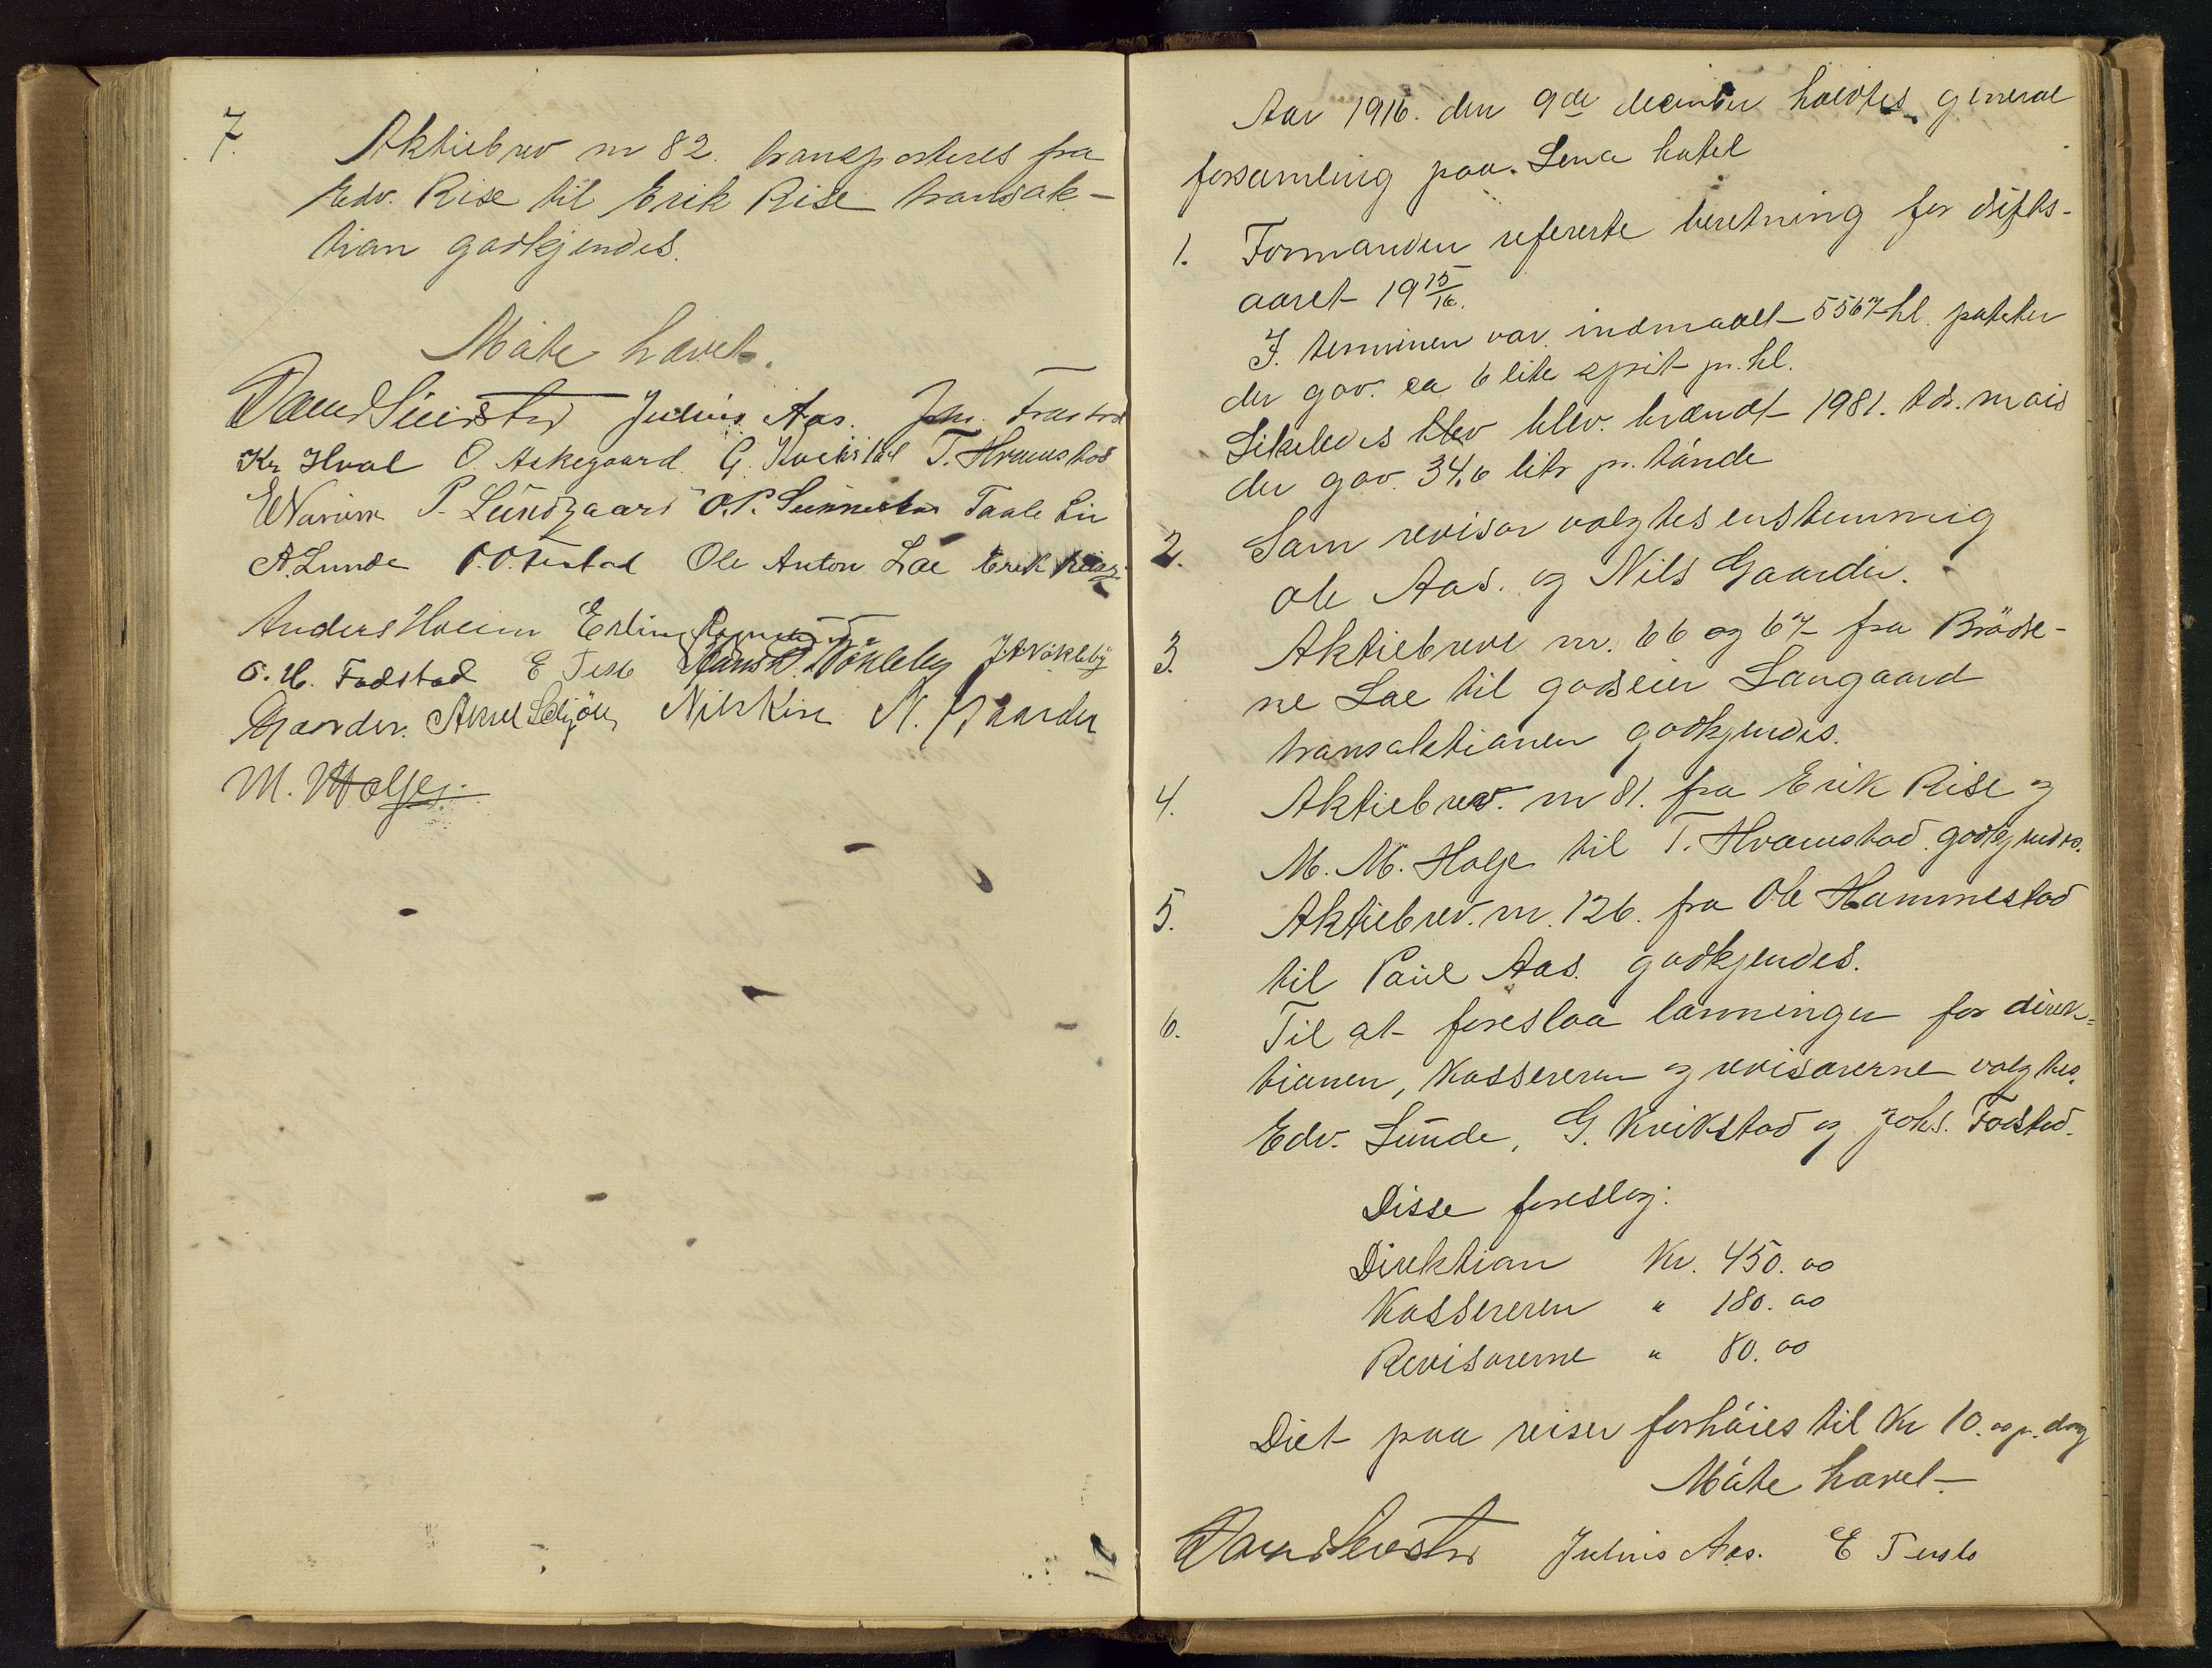 7. Aktiebrev nr 82. transporteres fra
Edv. Rise til Erik Rise transak-
tion godkjendes.
Møte hævet.
Julius Aas.
Kr Hval O. Askegaard G. Kvikstad T. Hveemstad
P. Lundgaard O.P. Sunnestad
A. Lunde Ole Anton Lae Erik Rise
Anders Hoem Erling
O. H. Fodstad E Teslo Wøhleby
Gaarder. Nils Rise N. Gaarder
M. M Holje.
Aar 1916. den 9de december holdtes general
forsamling paa Lena hotel
1. Formanden refererte beretning for drifts-
aaret 19 15/16.
I terminen var indmaalt 5567 hl. poteter
der gav. ca 6 liter sprit pr. hl.
Likeledes blev blev. brændt 1981. tdr. mais
der gav 34,6 litr pr. tønde
2. Som revisor valgtes enstemmig
Ole Aas. og Nils Gaarder.
3. Aktiebreve nr. 66 og 67 fra Brødre-
ne Lae til godseier Langaard
transaktionen godkjendes.
4. Aktiebrev. nr 81. fra Erik Rise og
M. M. Holje til T. Hveemstad godkjendes.
5. Aktiebrev. nr. 126. fra Ole Hammestad
til Paul Aas. godkjendes.
6. Til at foreslaa lønninger for direk=
tionen, Kassereren og revisorerne valgtes.
Edv. Lunde, G. Kvikstad og Johs. Fodstad.
Disse foreslog:
Direktion Kr. 450.00
Kassereren " 180.00
Revisorerne " 80.00
Diet paa reiser forhøies til Kr 10.00 pr. dag
Møte hævet
Julius Aas. E Teslo